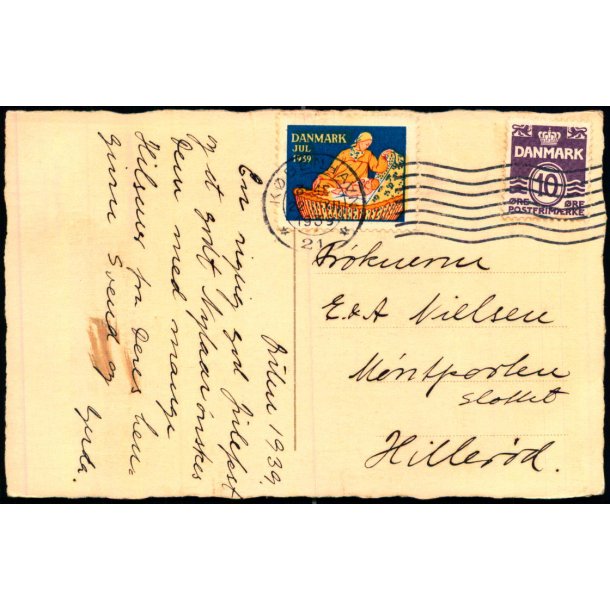 DANMARK
JUL
1939
DANMARK
10
ØRE ØRE
POSTFRIMÆRKE
KØ
21
Frøknerne
E. & A Nielsen
Møntporten
Slottet
Hillerød.
Julen 1939.
En rigtig god Julefest
og et godt Nytaar ønskes
Dem med mange
Hilsner fra Deres hen-
Svend og
Gerda.